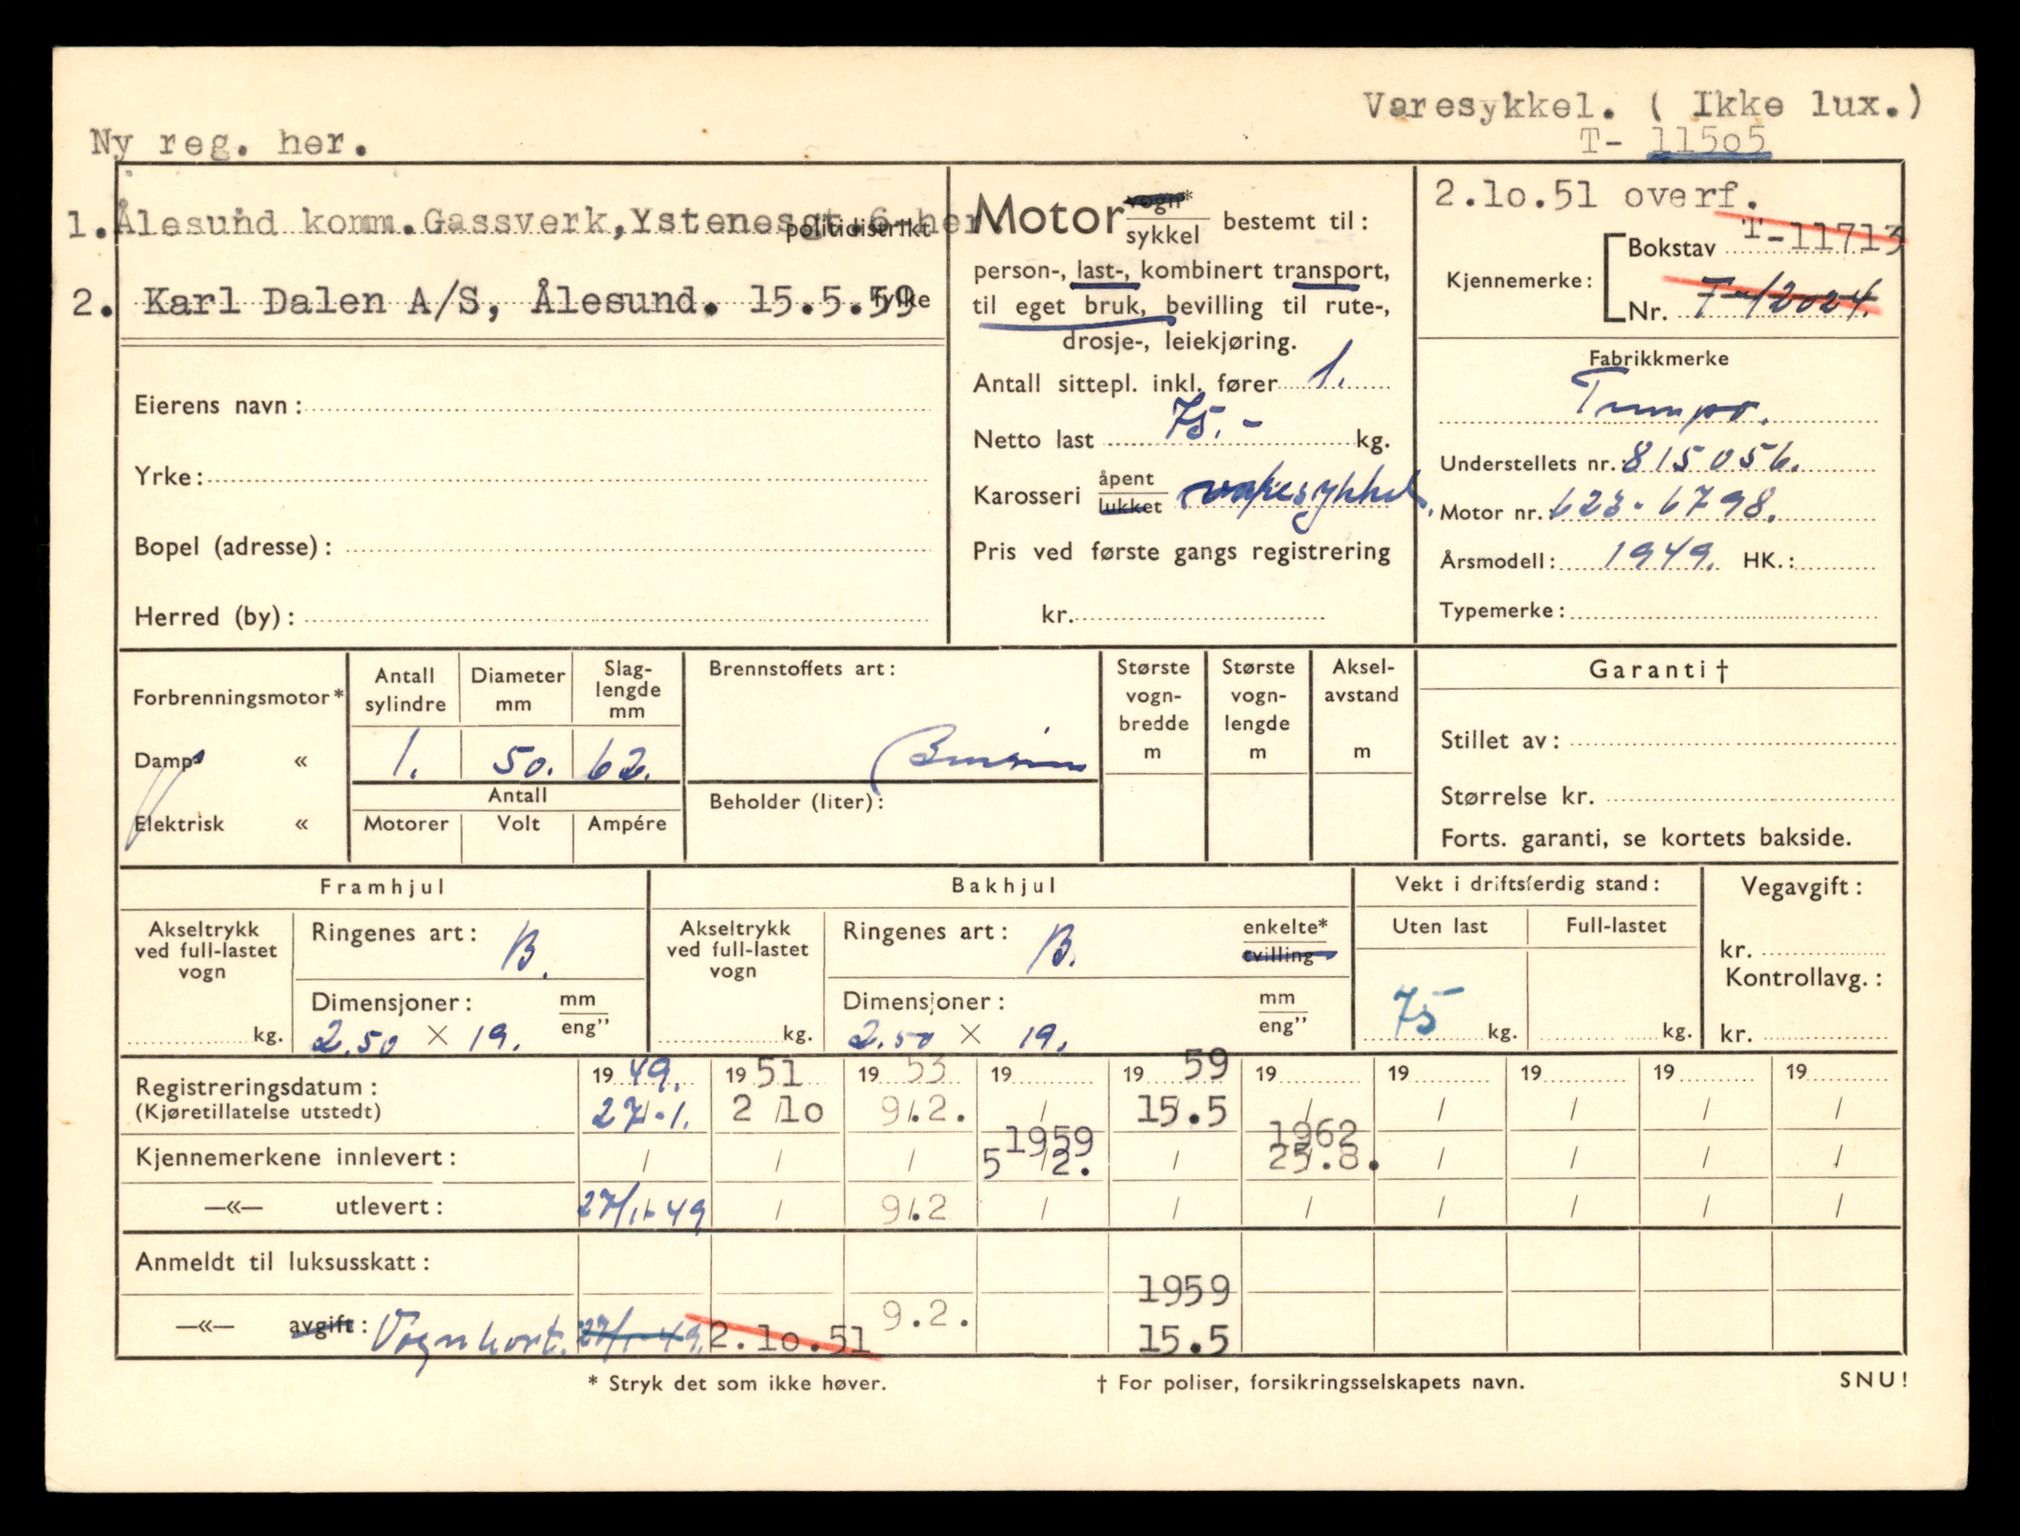 Varesykkel. ( Ikke lux.)
Ny reg. her.
T- 11505
1. Ålesund komm.Gassverk,Ystenesgt.6 her.
politidistrikt
2. Karl Dalen A/S, Ålesund. 15.5.59
fylke
Eierens navn:
Yrke:
Bopel (adresse):
Herred (by):
Motor vogn* sykkel bestemt til:
person-, last-, kombinert transport,
til eget bruk, bevilling til rute-,
drosje-, leiekjøring.
Antall sittepl. inkl. fører 1.
Netto last 75.- kg.
Karosseri åpent lukket varesykkel.
Pris ved første gangs registrering
kr.
2.10.51 overf.
Kjennemerke: Bokstav T-11713
Nr. T-12024.
Fabrikkmerke
Tempo.
Understellets nr. 815056.
Motor nr. 623-6798.
Årsmodell: 1949. HK.:
Typemerke:
Forbrenningsmotor*
Damp «
Elektrisk «
Antall sylindre
Diameter mm
Slag-lengde mm
1. 50. 62.
Antall
Motorer Volt Ampére
Brennstoffets art:
Bensin
Beholder (liter):
Største vogn-bredde m
Største vogn-lengde m
Aksel-avstand m
Garanti †
Stillet av:
Størrelse kr.
Forts. garanti, se kortets bakside.
Framhjul
Akseltrykk ved full-lastet vogn
kg.
Ringenes art: B.
Dimensjoner: mm eng”
2.50 × 19.
Bakhjul
Akseltrykk ved full-lastet vogn
kg.
Ringenes art: B. enkelte* tvilling
Dimensjoner: mm eng”
2.50 × 19.
Vekt i driftsferdig stand:
Uten last Full-lastet
75 kg. kg.
Vegavgift:
kr.
Kontrollavg.:
kr.
Registreringsdatum: 19 49. 19 51 19 53 19 19 59 19 19 19 19 19
(Kjøretillatelse utstedt) 27/-1. 2/10 9/.2. / 15.5 / / / / /
1959 1962
Kjennemerkene innlevert: / / / 5/2. / 25.8. / / / /
—«— utlevert: 27/1-49 / 9/.2 / / / / / / /
Anmeldt til luksusskatt:
1959
—«— avgift: Vognkort. 27/1-49. 2.10.51 9.2. 15.5
* Stryk det som ikke høver.
† For poliser, forsikringsselskapets navn.
SNU!